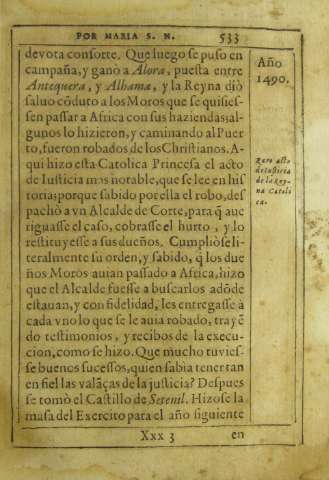 POR MARIA S. N. 533
devota consorte. Que luego se puso en
campaña, y ganò a Alora, puesta entre
Antequera, y Alhama, y la Reyna diò
saluo cōduto a los Moros que se quisies-
sen passar a Africa con sus haziendas; al-
gunos lo hizieron, y caminando al Puer
to, fueron robados de los Christianos. A-
qui hizo esta Catolica Princesa el acto
de Iusticia mas notable, que se lee en his
toria; porque sabido por ella el robo, des
pachò a vn Alcalde de Corte, para q̄ aue
riguasse el caso, cobrasse el hurto, y lo
restituyesse a sus dueños. Cumpliòse li-
teralmente su orden, y sabido, q̄ los due
ños Moros auian passado a Africa, hizo
que el Alcalde fuesse a buscarlos adōde
estauan, y con fidelidad, les entregasse à
cada vno lo que se le auia robado, trayē
do testimonios, y recibos de la execu-
cion, como se hizo. Que mucho tuvies-
se buenos sucessos, quien sabia tener tan
en fiel las valāças de la justicia? Despues
se tomò el Castillo de Setenil. Hizose la
masa del Exercito para el año siguiente
Xxx 3 en
Año
1490.
Raro acto
de Iusticia
de la Rey-
na Catoli
ca.